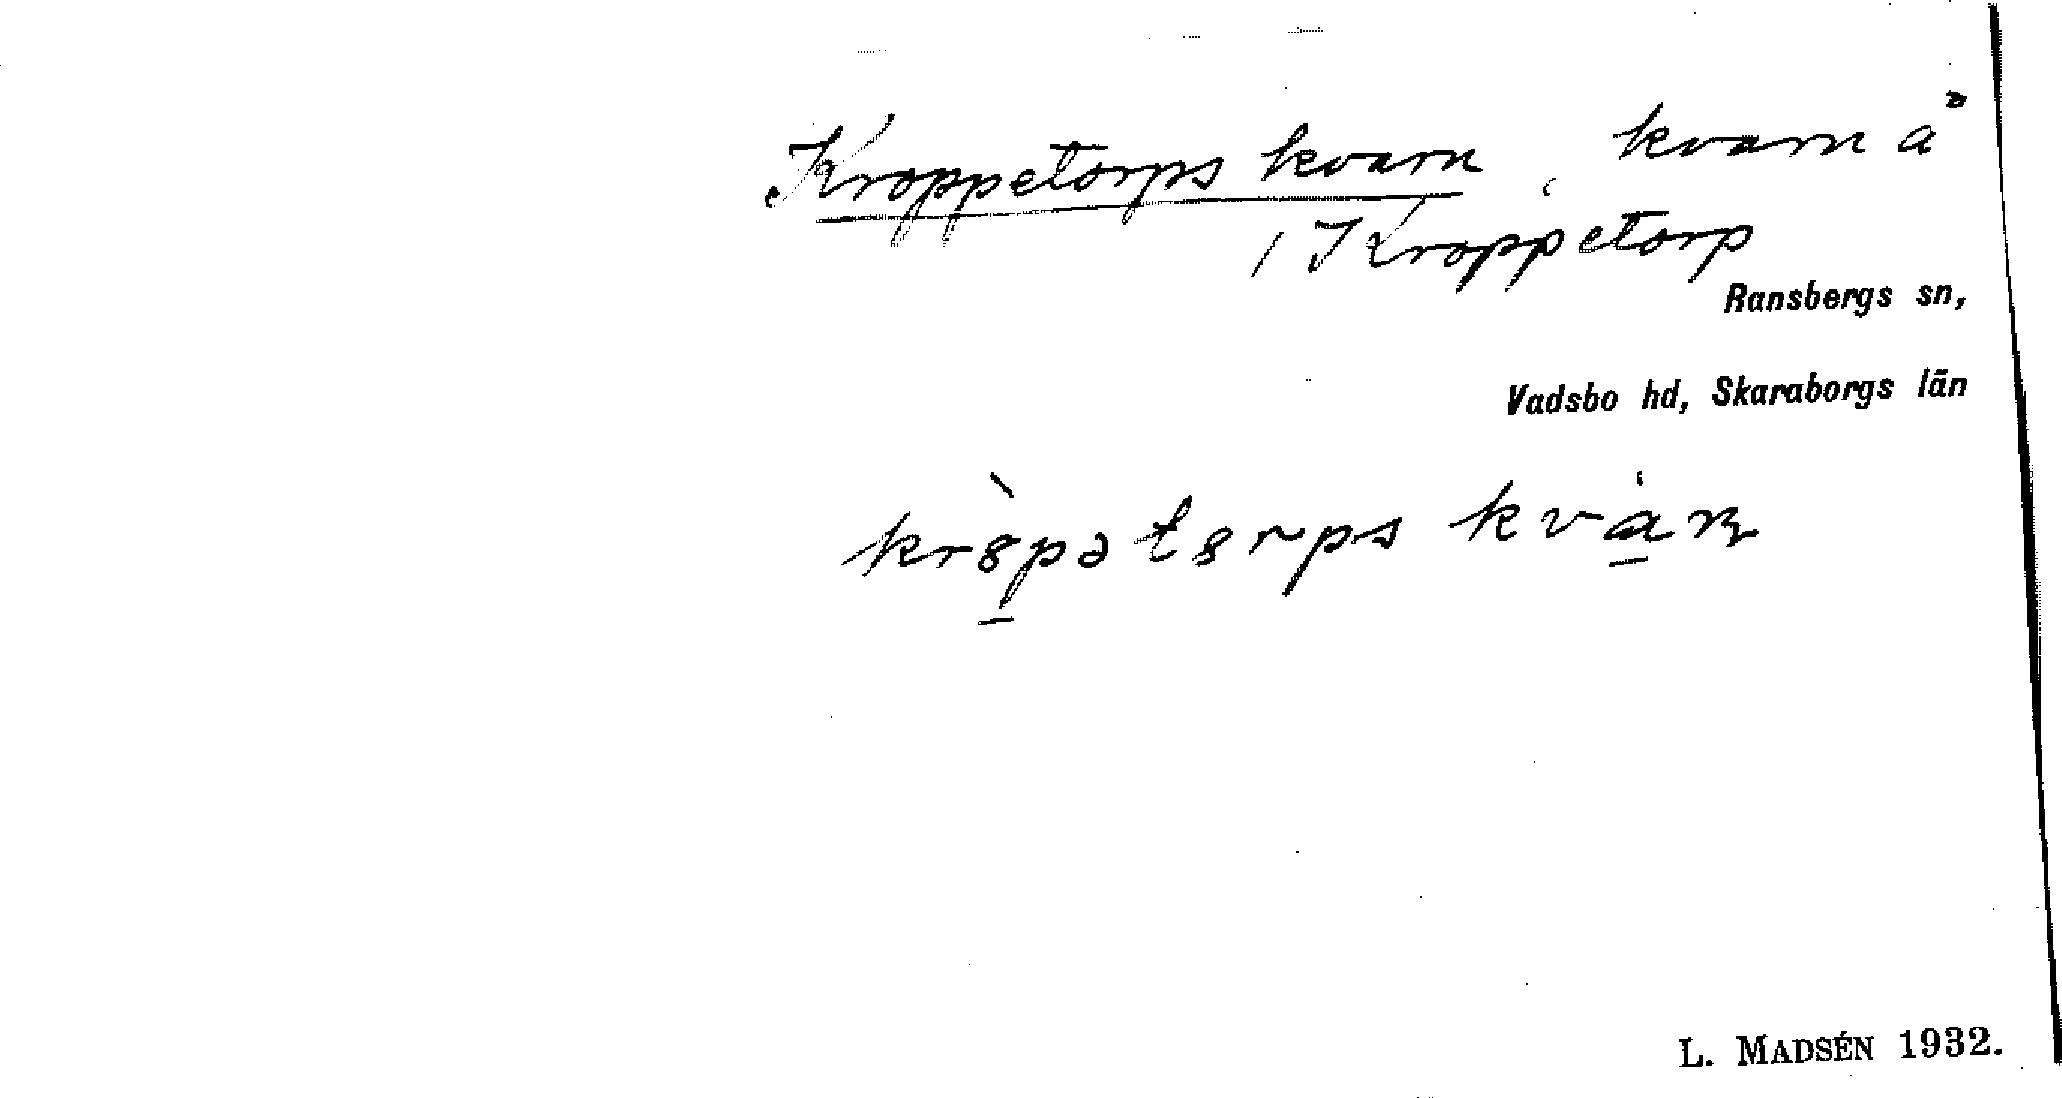 Kroppetorps kvarn, kvarn å
/ I Kroppetorp
Ransbergs sn,
Vadsbo hd, Skaraborgs län
kr8̀pətsrps kván
L. MADSÉN 1932.